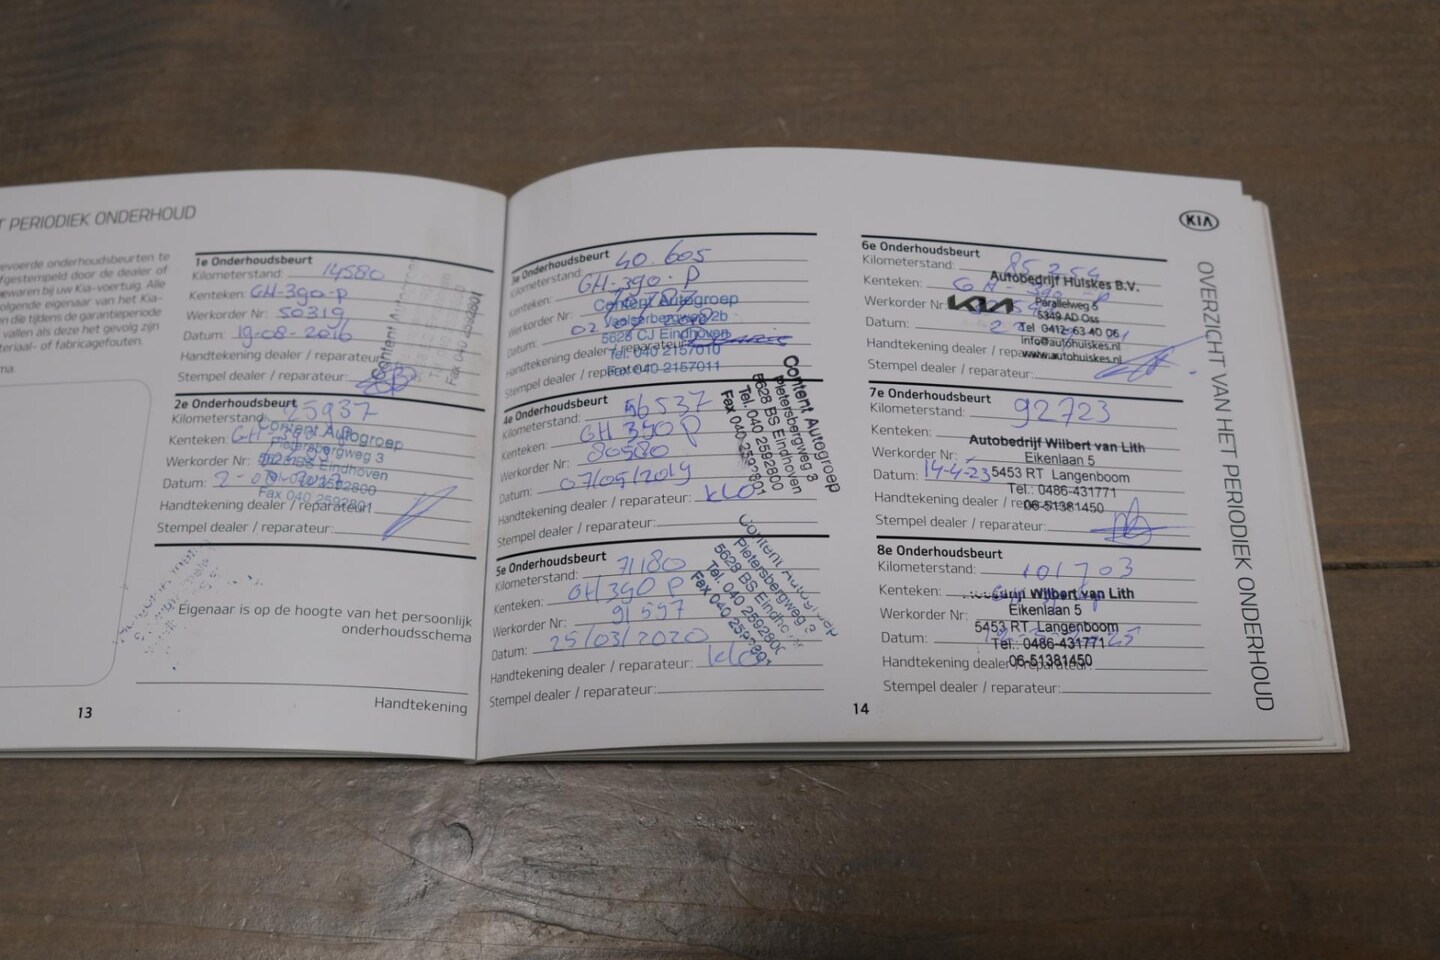 T PERIODIEK ONDERHOUD
evoerde onderhoudsbeurten te
fgestempeld door de dealer of
ewaren bij uw Kia-voertuig. Alle
olgende eigenaar van het Kia-
en die tijdens de garantieperiode
vallen als deze het gevolg zijn
teriaal- of fabricagefouten.
ma.
1e Onderhoudsbeurt
Kilometerstand: 14580
Kenteken: GH-390-P
Werkorder Nr: 50319
Datum: 19-08-2016
Handtekening dealer / reparateur:
Stempel dealer / reparateur:
Content Autogroep
Fax 040 2592801
2e Onderhoudsbeurt
Kilometerstand: 25937
Kenteken: GH-390-P
Werkorder Nr:
Datum:
Handtekening dealer / reparateur:
Stempel dealer / reparateur:
Content Autogroep
Pietersbergweg 3
5628 BS Eindhoven
Tel. 040 2592800
Fax 040 2592801
Eigenaar is op de hoogte van het persoonlijk
onderhoudsschema
Handtekening
13
3e Onderhoudsbeurt
Kilometerstand: 40.605
Kenteken: GH-390-P
Werkorder Nr:
Datum:
Handtekening dealer / reparateur:
Stempel dealer / reparateur:
Content Autogroep
Vaalserbergweg 2b
5628 CJ Eindhoven
Tel. 040 2157010
Fax 040 2157011
4e Onderhoudsbeurt
Kilometerstand: 56537
Kenteken: GH 390 P
Werkorder Nr: 80580
Datum: 07/05/2019
Handtekening dealer / reparateur: klo
Stempel dealer / reparateur:
Content Autogroep
Pietersbergweg 3
5628 BS Eindhoven
Tel. 040 2592800
Fax 040 2592801
5e Onderhoudsbeurt
Kilometerstand: 71180
Kenteken: GH 390 P
Werkorder Nr: 91597
Datum: 25/03/2020
Handtekening dealer / reparateur: klo
Stempel dealer / reparateur:
Content Autogroep
Pietersbergweg 3
5628 BS Eindhoven
Tel. 040 2592800
Fax 040 2592801
14
6e Onderhoudsbeurt
Kilometerstand: 85254
Kenteken:
Werkorder Nr:
Datum:
Handtekening dealer / reparateur:
Stempel dealer / reparateur:
Autobedrijf Huiskes B.V.
KIA
Parallelweg 6
5349 AD Oss
Tel 0412-63 40 06
info@autohuiskes.nl
www.autohuiskes.nl
7e Onderhoudsbeurt
Kilometerstand: 92723
Kenteken:
Werkorder Nr:
Datum: 14-4-23
Handtekening dealer / reparateur:
Stempel dealer / reparateur:
Autobedrijf Wilbert van Lith
Eikenlaan 5
5453 RT Langenboom
Tel.: 0486-431771
06-51381450
8e Onderhoudsbeurt
Kilometerstand: 101703
Kenteken:
Werkorder Nr:
Datum:
Handtekening dealer / reparateur:
Stempel dealer / reparateur:
Wilbert van Lith
Eikenlaan 5
5453 RT Langenboom
Tel.: 0486-431771
06-51381450
KIA
OVERZICHT VAN HET PERIODIEK ONDERHOUD